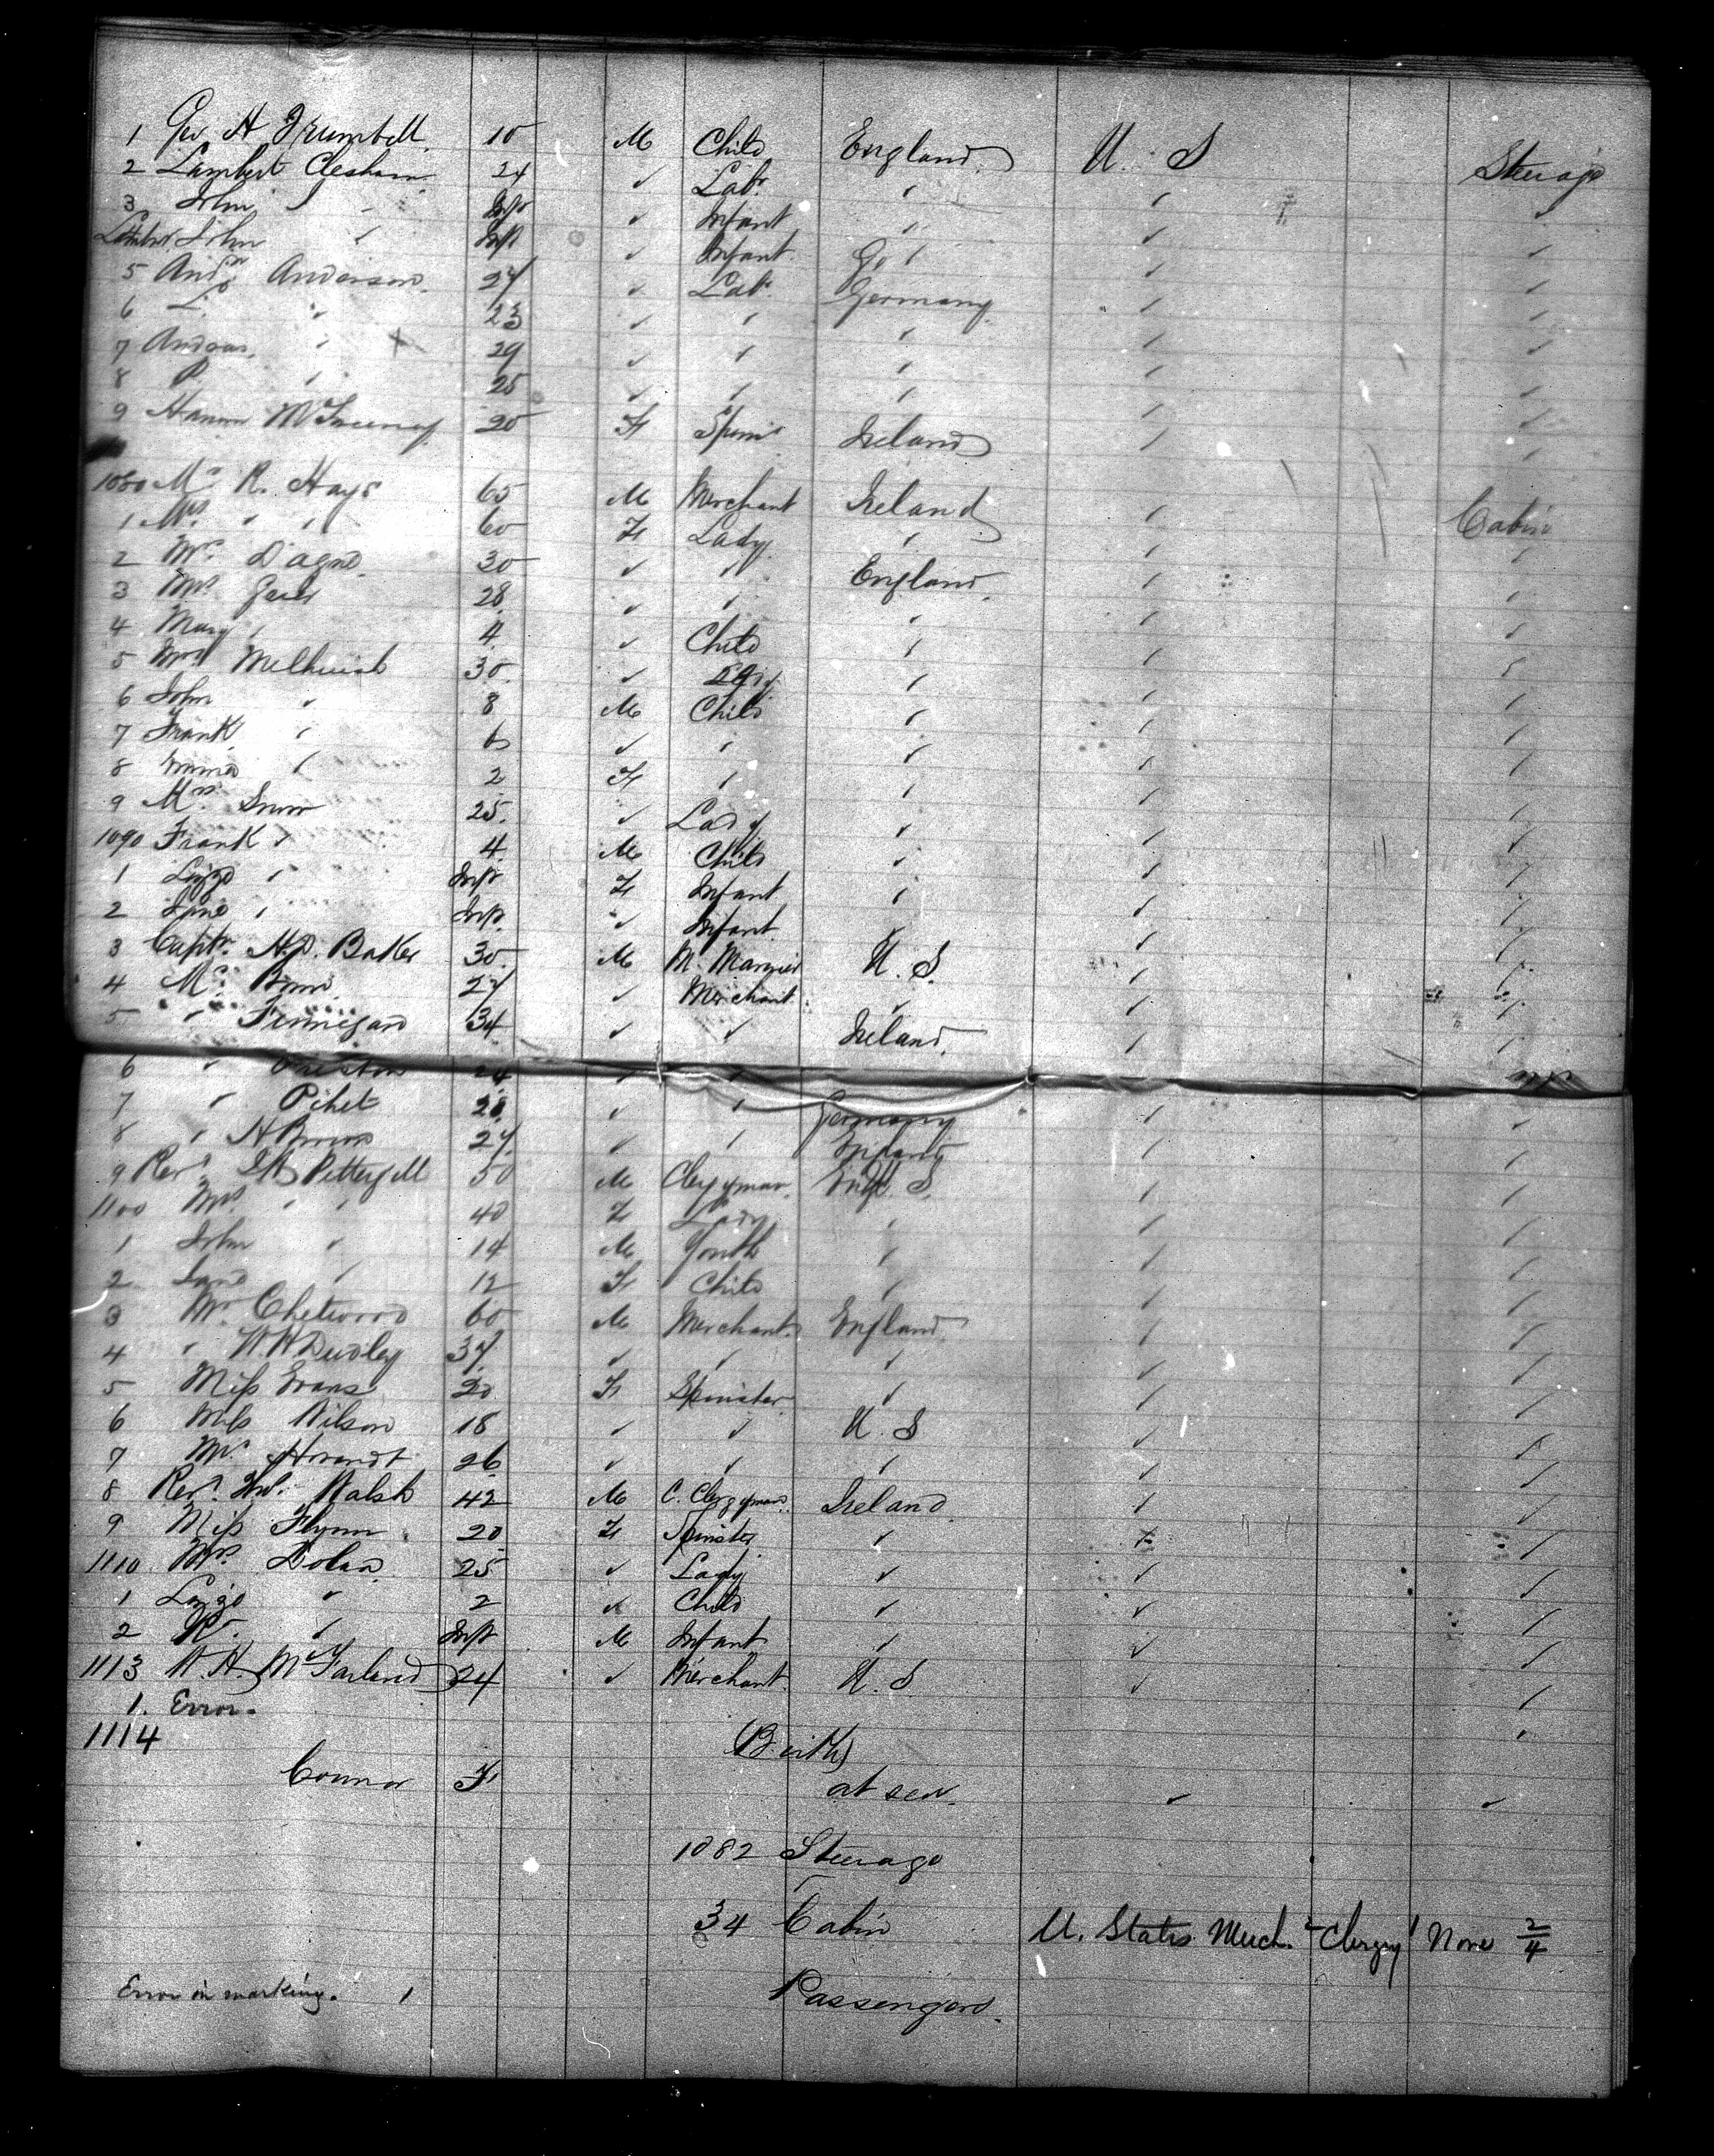 1 Geo H Trumbell 10 M Child England U. S Steerage
2 Lambert Clesham 24 ✓ Labr ✓ ✓ ✓
3 John ✓ Inft ✓ Infant ✓ ✓ ✓
John ✓ Inft ✓ Infant ✓ ✓
5 Anderson 27 ✓ Labr Germany ✓ ✓
6 L ✓ 23 ✓ ✓ ✓ ✓ ✓
7 Andreas ✓ 29 ✓ ✓ ✓ ✓ ✓
8 P ✓ 25 ✓ ✓ ✓ ✓ ✓
9 20 F Spinr Ireland ✓ ✓
1080 Mr R. Hays 65 M Merchant Ireland ✓ Cabin
1 Mrs ✓ ✓ 60 F Lady ✓ ✓ ✓
2 30 ✓ ✓ England ✓ ✓
3 Mrs 28 ✓ ✓ ✓ ✓ ✓
4 Mary ✓ 4 ✓ Child ✓ ✓ ✓
5 Mrs Melhuish 30 ✓ Lady ✓ ✓ ✓
6 John ✓ 8 M Child ✓ ✓ ✓
7 Frank ✓ 6 ✓ ✓ ✓ ✓ ✓
8 ✓ 2 F ✓ ✓ ✓ ✓
9 Mrs Snow 25 ✓ Lady ✓ ✓ ✓
1090 Frank ✓ 4 M Child ✓ ✓ ✓
1 Lizze ✓ Inft F Infant ✓ ✓ ✓
2 Jane ✓ Inft ✓ Infant ✓ ✓ ✓
3 Captn H.D. Baker 30 M M. Marrier U. S. ✓ ✓
4 Mr 27 ✓ Merchant ✓ ✓ ✓
5 ✓ Finnegan 34 ✓ ✓ Ireland ✓ ✓
6 ✓ Preston 24 ✓ ✓
7 ✓ Pihet 28 ✓ ✓ Germany ✓ ✓
8 ✓ H Brown 27 ✓ ✓ ✓ ✓
9 Revd Pettengill 50 M Clergyman U. S. ✓ ✓
1100 Mrs ✓ ✓ 40 F Lady ✓ ✓ ✓
1 John ✓ 14 M Youth ✓ ✓ ✓
2 Jane ✓ 12 F Child ✓ ✓ ✓
3 Mr Chetwood 60 M Merchant England ✓ ✓
4 ✓ W H Dudley 37 ✓ ✓ ✓ ✓ ✓
5 Miss Evans 20 F Spinster ✓ ✓ ✓
6 Miss Wilson 18 ✓ ✓ U. S ✓ ✓
7 26 ✓ ✓ ✓ ✓ ✓
8 Revd Wm. Walsh 42 M C. Clergyman Ireland ✓ ✓
9 Miss Flynn 20 F Spinster ✓ ✓ ✓
1110 Mrs Dolan 25 ✓ Lady ✓ ✓ ✓
1 Lizze ✓ 2 ✓ Child ✓ ✓ ✓
2 ✓ Inft M Infant ✓ ✓ ✓
1113 W. H. McFarland 24 ✓ Merchant U. S ✓ ✓
1. Error.
1114 (Birth)
Connor F at sea. ✓ ✓
1082 Steerage
34 Cabin U. States Merch. 2 Clergy 1 None 2/4
Error in marking. 1 Passengers.